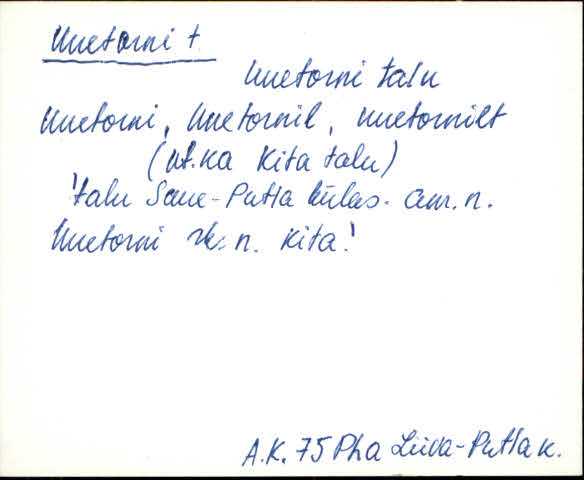 Unetorni t.
Unetorni talu
Unetorni, Unetornil, Unetornilt
(vt. ka Kita talu)
'talu Saue-Putla külas. am. n.
Unetorni rk. n. Kita!
A.K. 75 Pha Liiva-Putla k.